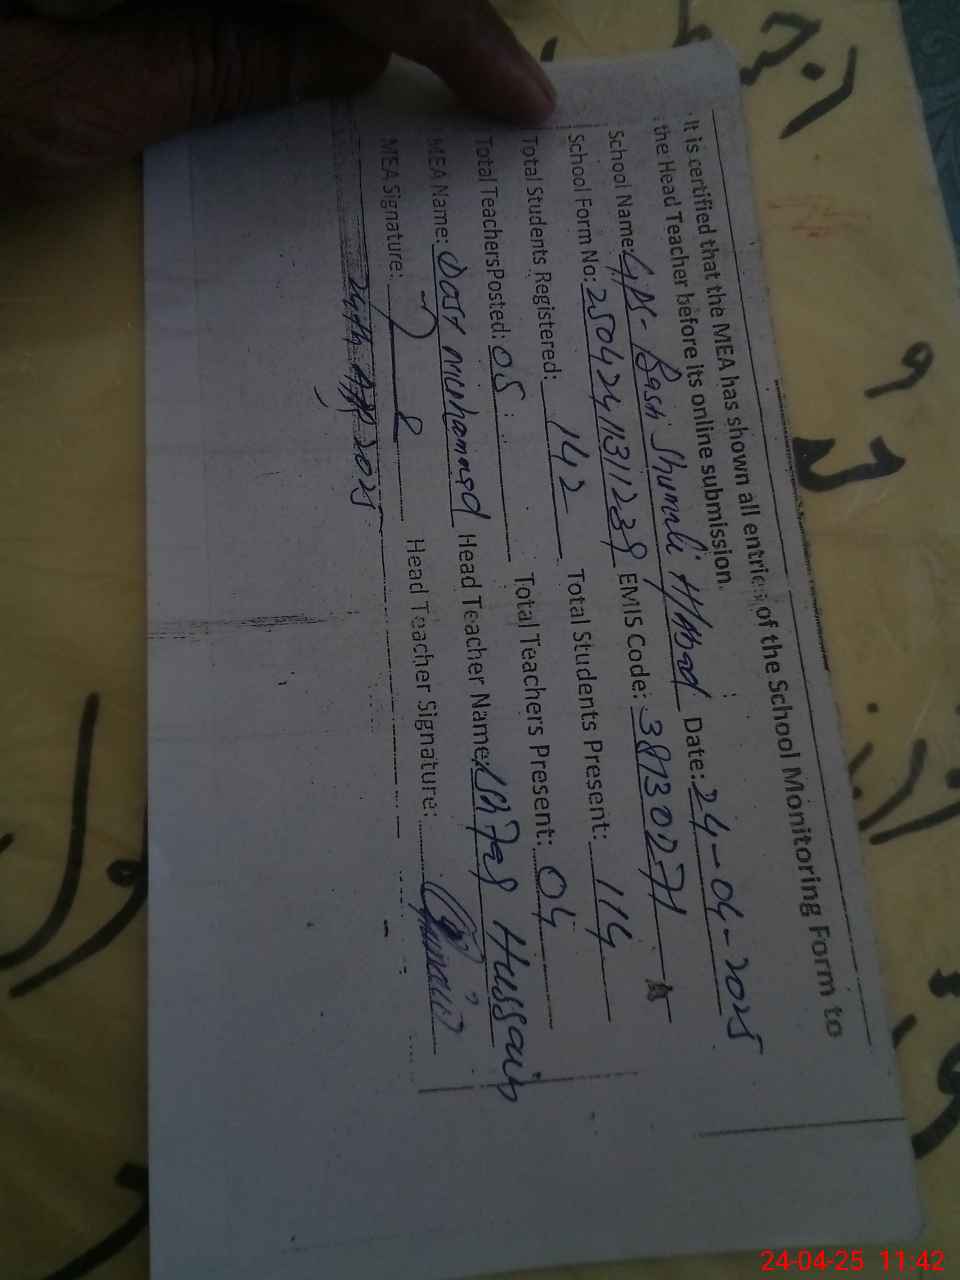 It is certified that the MEA has shown all entries of the School Monitoring Form to
the Head Teacher before its online submission.
School Name: GPS- Basti Shumali H/Abad Date: 24-04-2025
School Form No: 250424131123 EMIS Code: 38130271
Total Students Registered: 142 Total Students Present: 114
Total Teachers Posted: 05 Total Teachers Present: 04
MEA Name: Dost muhammad Head Teacher Name: Ishfaq Hussain
MEA Signature: Head Teacher Signature:
24th Apr 2025
24-04-25 11:42